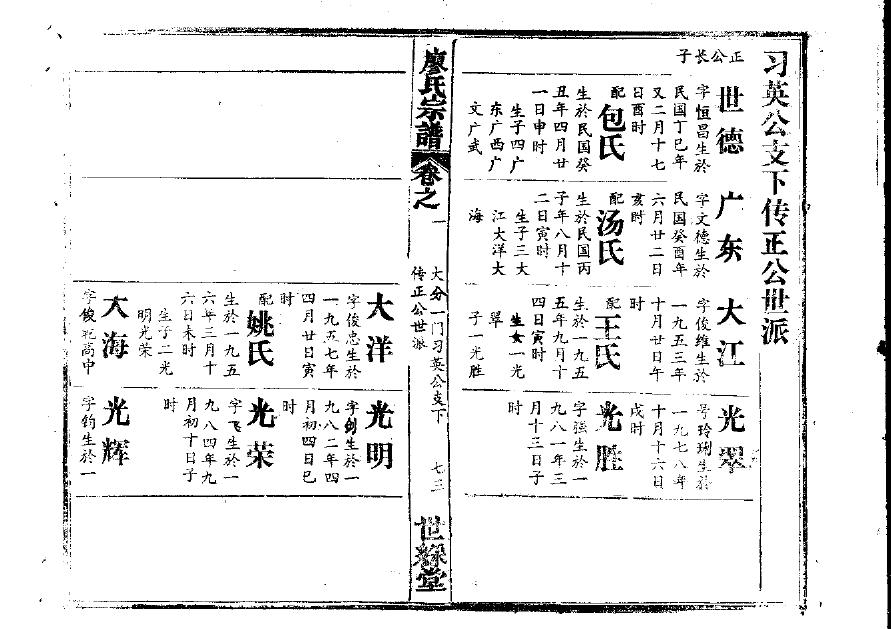 习英公支下传正公世派
正公长子
世德
字恒昌生於
民国丁巳年
又二月十七
日酉时
配
包氏
生於民国癸
丑年四月廿
一日申时
生子四广
东广西广
文广武
广东
字文德生於
民国癸酉年
六月廿二日
亥时
配
汤氏
生於民国丙
子年八月十
二日寅时
生子三大
江大洋大
海
大江
字俊维生於
一九五三年
十月廿日午
时
配
王氏
生於一九五
五年九月十
四日寅时
生女一光
翠
子一光胜
光翠
号玲琍生於
一九七八年
十月十六日
戌时
光胜
字强生於一
九八一年三
月十三日子
时
廖氏宗譜
卷之一
大分一门习英公支下
传正公世派
七三
世綵堂
大洋
字俊忠生於
一九五七年
四月廿日寅
时
配
姚氏
生於一九五
六年三月十
六日未时
生子二光
明光荣
大海
字俊 高中
光明
字剑生於一
九八二年四
月初四日巳
时
光荣
字飞生於一
九八四年九
月初十日子
时
光辉
字钧生於一